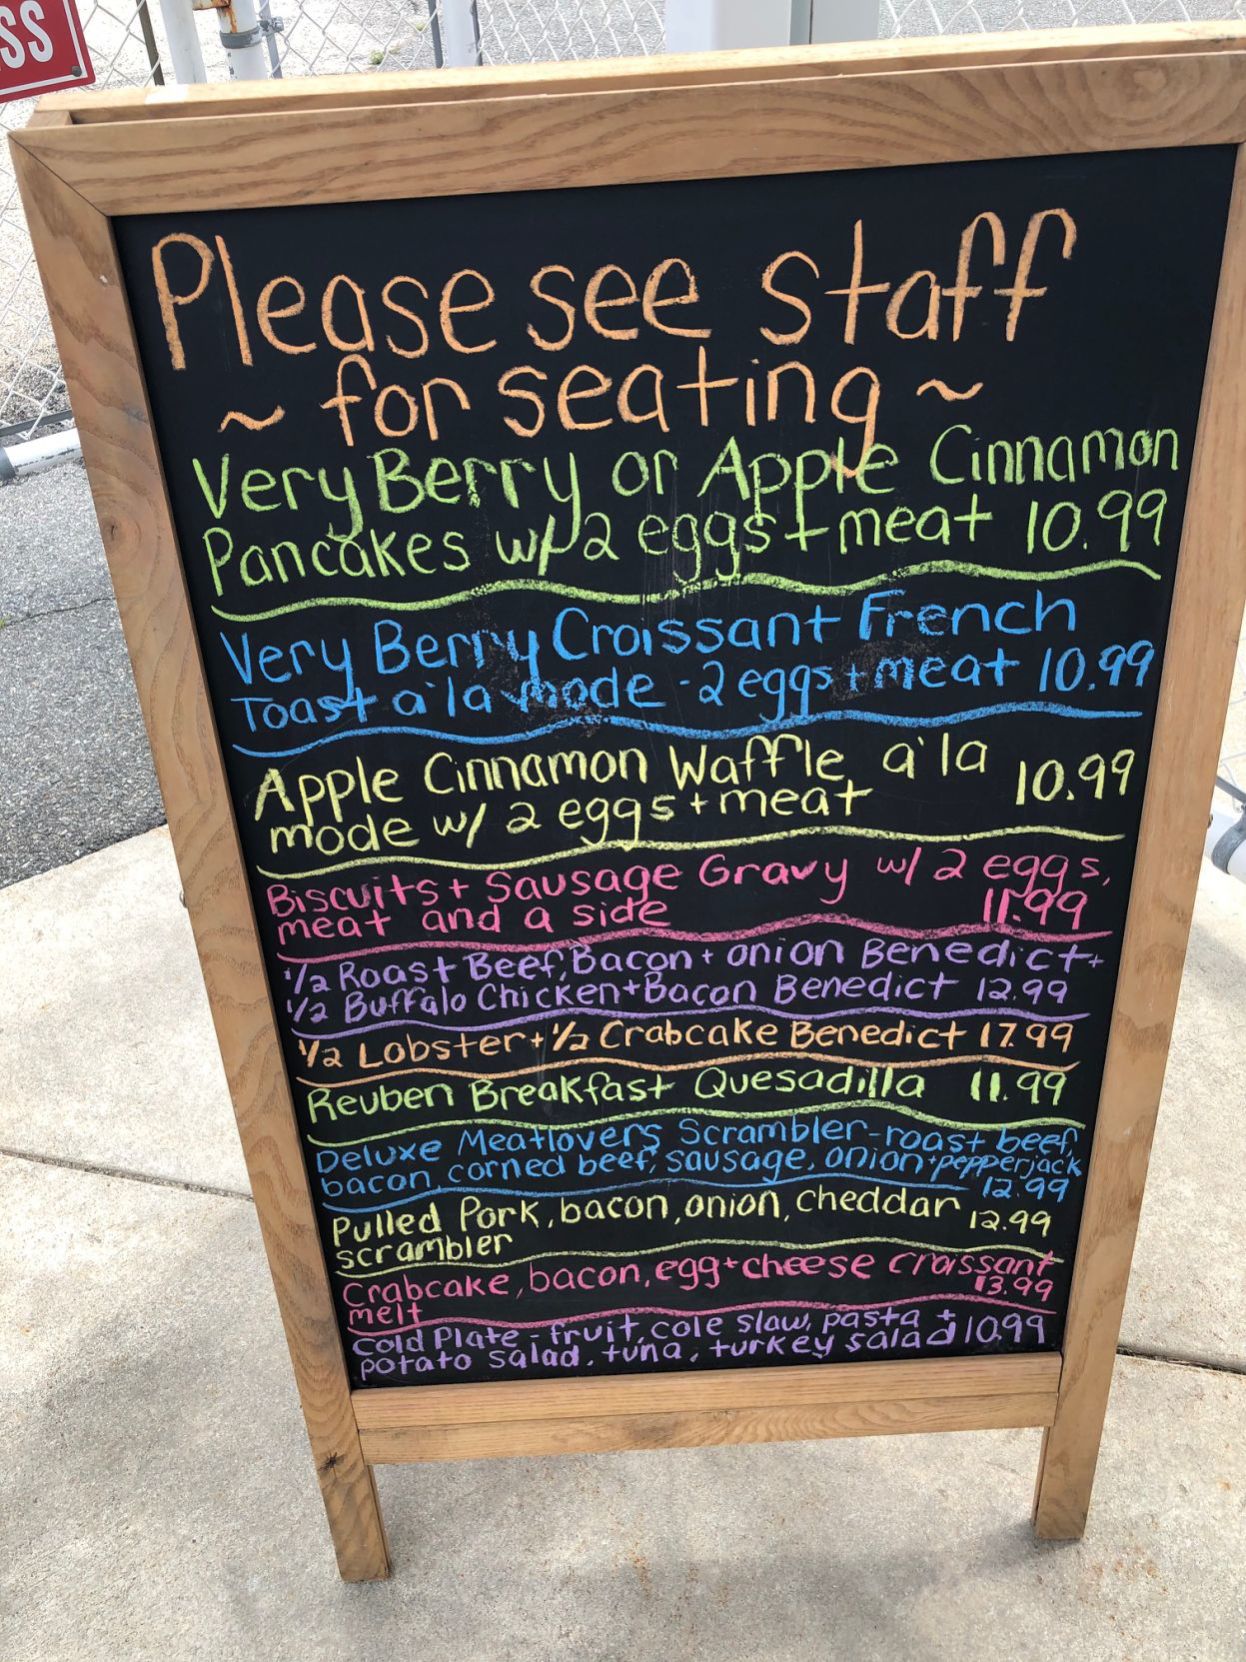 SS
Please see staff
~ for seating ~
Very Berry or Apple Cinnamon
Pancakes w/ 2 eggs + meat 10.99
Very Berry Croissant French
Toast a'la mode - 2 eggs + meat 10.99
Apple Cinnamon Waffle a'la
mode w/ 2 eggs + meat 10.99
Biscuits + Sausage Gravy w/ 2 eggs,
meat and a side 11.99
1/2 Roast Beef, Bacon + onion Benedict +
1/2 Buffalo Chicken + Bacon Benedict 12.99
1/2 Lobster + 1/2 Crabcake Benedict 17.99
Reuben Breakfast Quesadilla 11.99
Deluxe Meatlovers Scrambler - roast beef,
bacon, corned beef, sausage, onion + pepperjack
12.99
Pulled Pork, bacon, onion, cheddar 12.99
scrambler
Crabcake, bacon, egg + cheese croissant
melt 13.99
Cold Plate - fruit, cole slaw, pasta +
potato salad, tuna, turkey salad 10.99